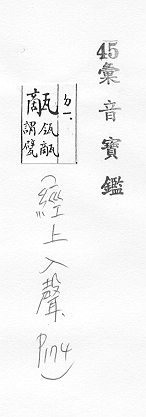 45彙音寶鑑
ㄅ一、
㼽瓴甋
謂甓
(經上入聲P174)